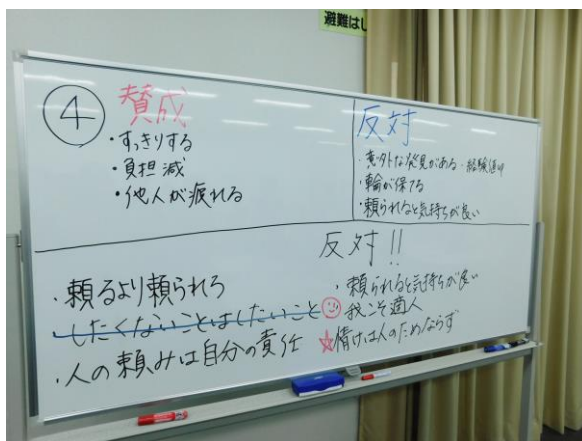 避難はし
④
賛成
・すっきりする
・負担減
・他人が疲れる
反対
・意外な発見がある・経験値up
・輪が保てる
・頼られると気持ちが良い
反対!!
・頼るより頼られろ
・したくないことはしたいこと
・人の頼みは自分の責任
・頼られると気持ちが良い
我こそ適人
☆情けは人のためならず